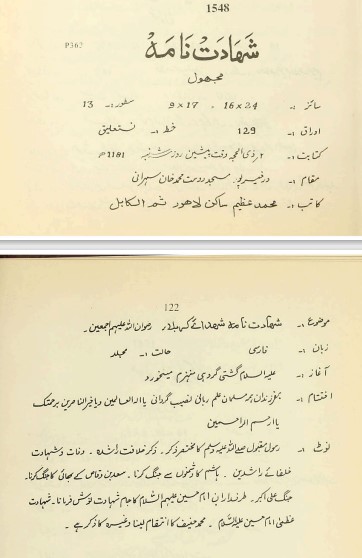 1548
P362
شہادت نامہ
مجہول
سائز :۔ 16×24 ، 9×17 سطور :۔ 13
اوراق :۔ 129 خط :۔ نستعلیق
کتابت :۔ ذی الحجہ وقت پیشین روز شنبہ 1181
مقام :۔ در مسجد دوست محمد خان
کاتب :۔ محمد عظیم ساکن لاہور ثم الکابل
122
موضوع :۔ شہادت نامہ شہدائے کربلا رضوان اللہ علیہم اجمعین۔
زبان :۔ فارسی حالت :۔ مجلد
آغاز :۔ علیہ السلام گشتی گردہی منہزم میخورد
اختتام :۔ بفرزندان ہر مسلمان علم ربانی نصیب گردانی یا الہ العالمین و یا خیر الناصرین برحمتک
یا ارحم الراحمین
نوٹ :۔ رسول مقبول صلی اللہ علیہ وسلم کا مختصر ذکر۔ ذکر خلافت راشدہ۔ وفات و شہادت
خلفائے راشدین۔ ہاشم کا دشمنوں سے جنگ کرنا۔ سعد بن وقاص کے بھائی کا جنگ کرنا۔
جنگ علی اکبر۔ طرفداران امام حسین علیہم السلام کا جام شہادت نوش فرمانا۔ شہادت
عظمیٰ امام حسین علیہ السلام۔ محمد حنیف کا انتقام لینا وغیرہ کا ذکر ہے۔